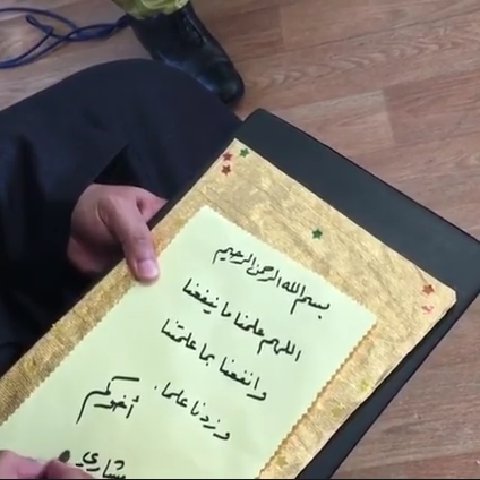 بسم الله الرحمن الرحيم
اللهم علمنا ما ينفعنا
وانفعنا بما علمتنا
وزدنا علما.
أخوكم
مشاري